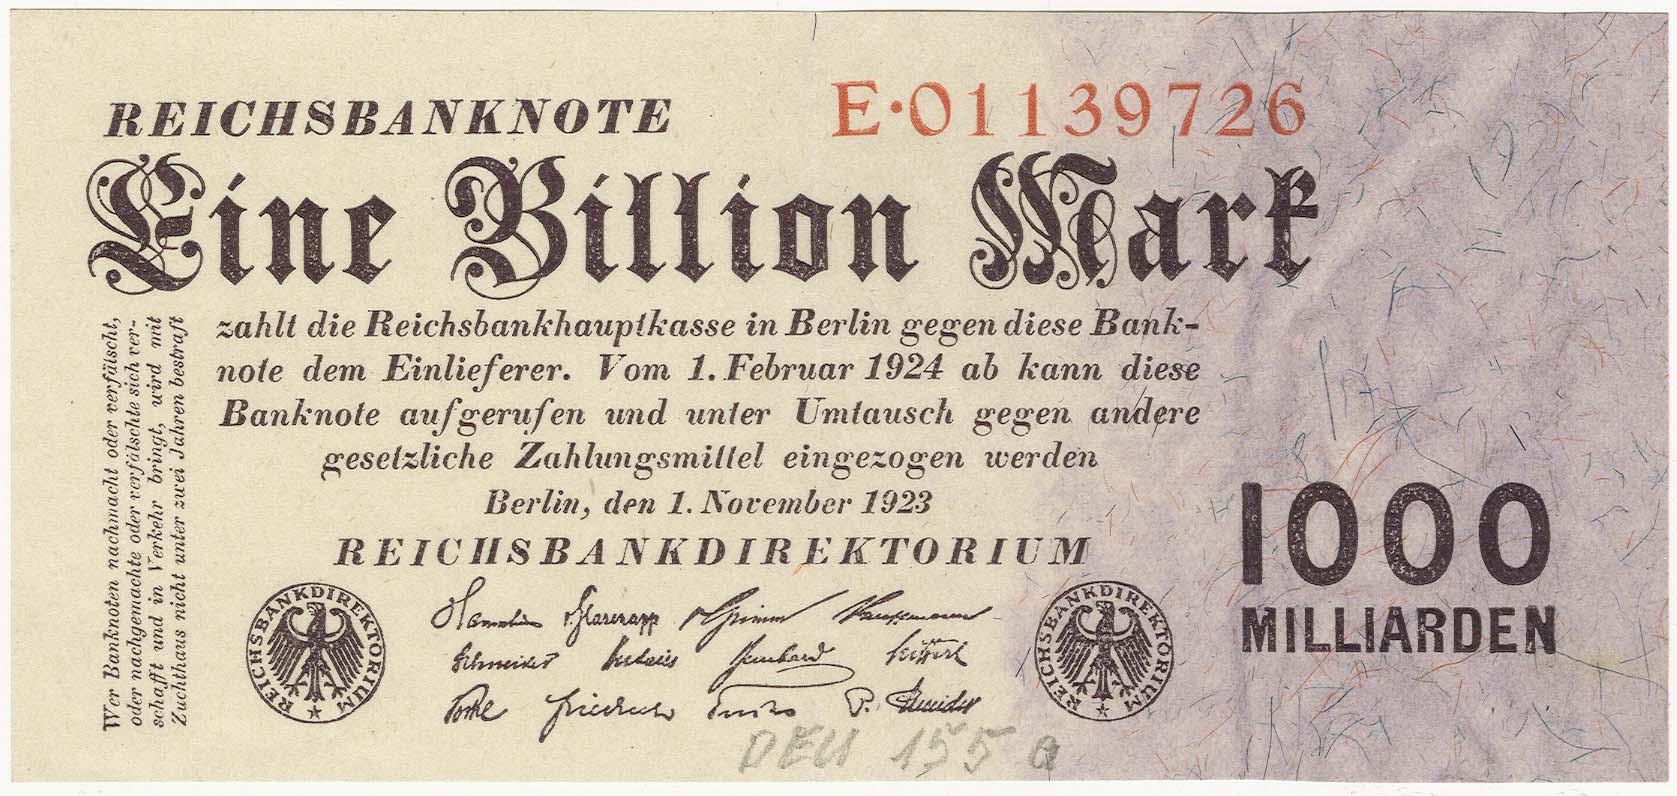 REICHSBANKNOTE
E·01139726
Eine Billion Mark
zahlt die Reichsbankhauptkasse in Berlin gegen diese Bank-
note dem Einlieferer. Vom 1. Februar 1924 ab kann diese
Banknote aufgerufen und unter Umtausch gegen andere
gesetzliche Zahlungsmittel eingezogen werden
Berlin, den 1. November 1923
REICHSBANKDIREKTORIUM
Wer Banknoten nachmacht oder verfälscht,
oder nachgemachte oder verfälschte sich ver-
schafft und in Verkehr bringt, wird mit
Zuchthaus nicht unter zwei Jahren bestraft
1000
MILLIARDEN
REICHSBANKDIREKTORIUM
v. Glasenapp v. Grimm Kauffmann
Schneider Budczies Bernhard Seiffert
Vocke Friedrich Fuchs P. Schneider
REICHSBANKDIREKTORIUM
DEU 155 a